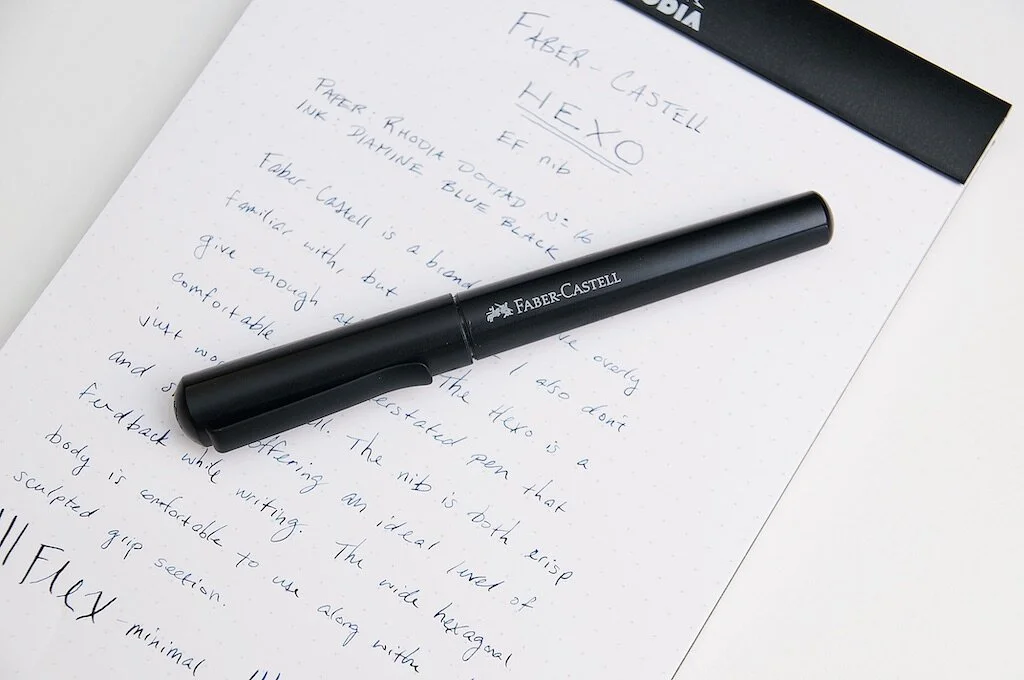 HODIA
FABER-CASTELL
HEXO
EF nib
PAPER: RHODIA DOTPAD Nº 16
INK: DIAMINE BLUE BLACK
Faber-Castell is a brand 've overly
familiar with, but I also don't
give enough The Hexo is a
comfortable erstated pen that
just The nib is both crisp
and offering an ideal level of
feedback while writing. The wide hexagonal
body is comfortable to use along with
sculpted grip section.
Flex -minimal
FABER-CASTELL